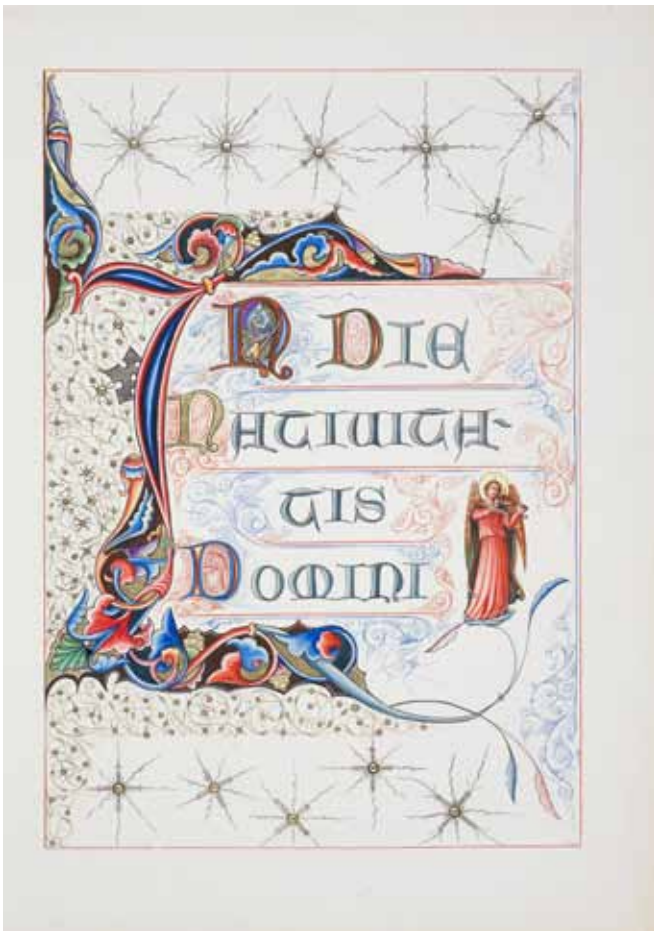 IN DIE
NATIUITA-
TIS
DOMINI